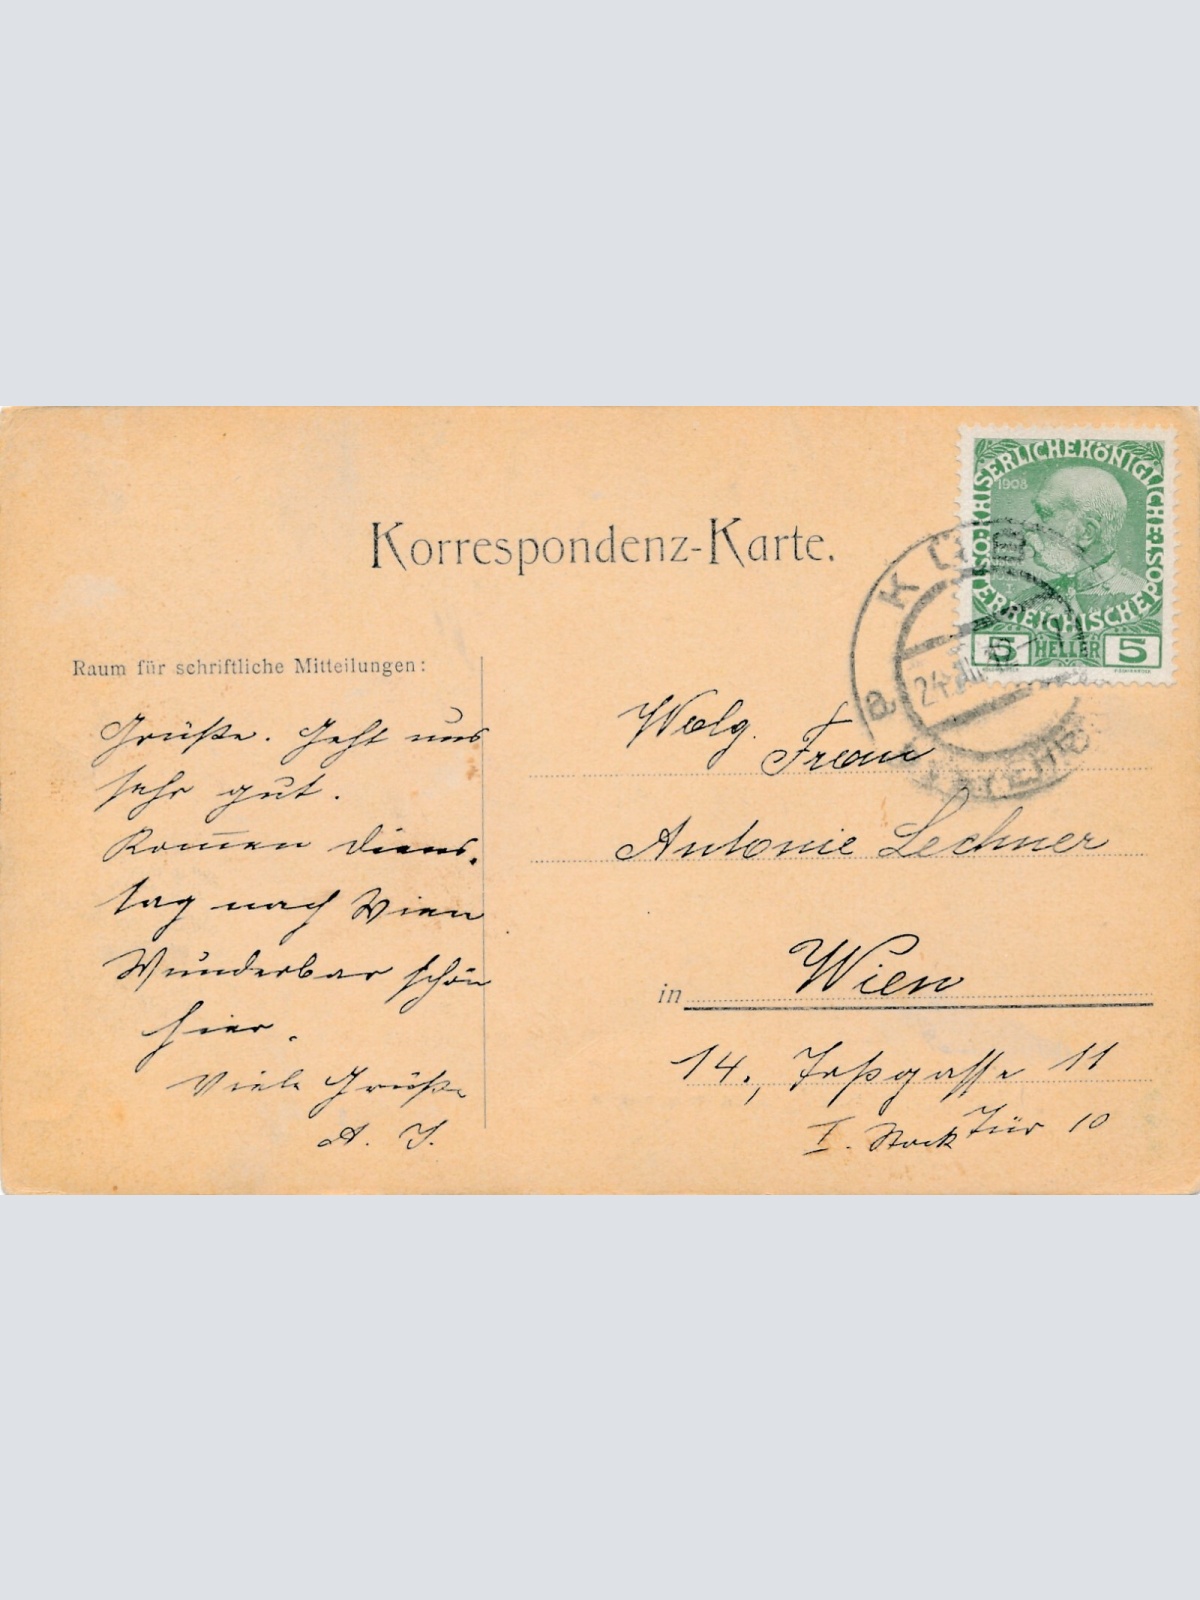 Korrespondenz-Karte.
ÖSTERREICHISCHE POST KAISERLICHE KÖNIGLICHE
1908
5 HELLER 5
KÜB
a
24.
Raum für schriftliche Mitteilungen:
Grüße. Geht uns
sehr gut.
Kom̄en Diens-
tag nach Wien
Wunderbar schön
hier.
Viele Grüße
A. J.
Wolg.
Frau
Antonie Lechner
in Wien
14., 11
I. Stock Tür 10